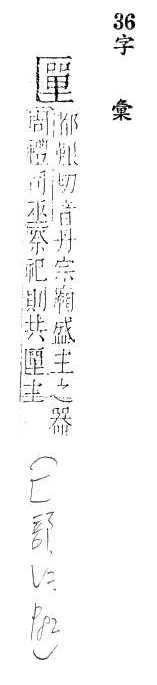 36字 彙
匰
都艱切音丹宗廟盛主之器
周禮司巫祭祀則共匰主
(匚部 p82)